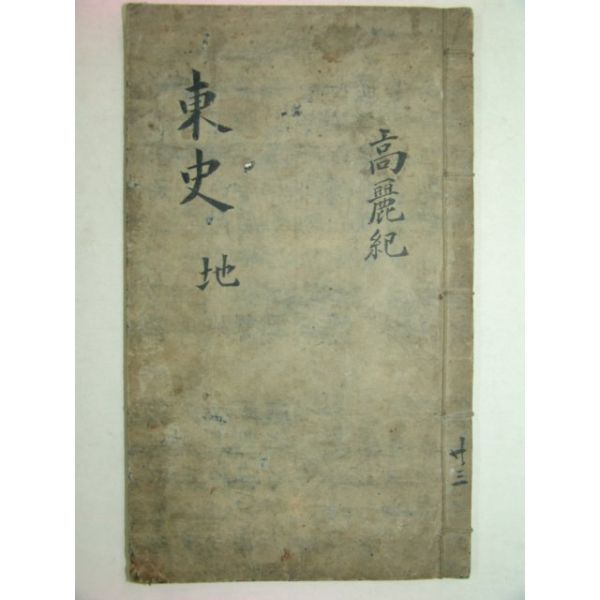 共三
高麗紀
東史 地